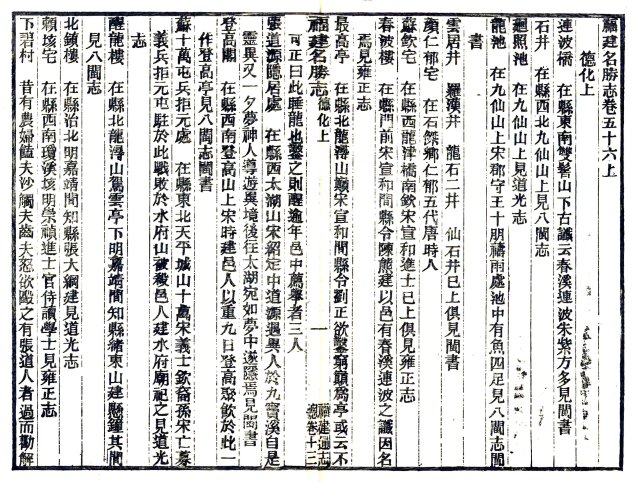 福建名勝志卷五十六上
德化上
連波橋　在縣東南雙髻山下古讖云春溪連波朱紫方多見閩書
石井　在縣西北九仙山上見八閩志
廻照池　在九仙山上見道光志
龍池　在九仙山上宋郡守王十朋禱雨處池中有魚四足見八閩志閩
書
雲居井　羅漢井　龍石二井　仙石井已上俱見閩書
顏仁郁宅　在石傑鄉仁郁五代唐時人
蘇欽宅　在縣西龍津橋南欽宋宣和進士已上俱見雍正志
春波樓　在縣門前宋宣和間縣令陳熊建以邑有春溪連波之讖因名
焉見雍正志
最高亭　在縣北龍潯山巔宋宣和間縣令劉正欲鑿窮巔爲亭或云不
福建名勝志　德化上　一　福建通志　總卷十三
可正曰此睡龍也鑿之則醒逾年邑中薦舉者三人
張道源隱居處　在縣西太湖山宋紹定中道源遇異人於九寶溪自是
靈異又一夕夢神人導遊異境後往太湖宛如夢中遂隱焉見閩書
登高閣　在縣西南登高山上宋時建邑人以重九日登高聚飲於此一
作登高亭見八閩志閩書
蘇十萬屯兵拒元處　在縣東北天平城山十萬宋義士欽裔孫宋亡募
義兵拒元屯駐於此戰敗於水府山被殺邑人建水府廟祀之見道光
志
醒龍樓　在縣北龍潯山駕雲亭下明嘉靖間知縣緒東山建懸鐘其間
見八閩志
北鎮樓　在縣治北明嘉靖間知縣張大綱建見道光志
賴垓宅　在縣西南瓊溪垓明崇禎進士官侍讀學士見雍正志
下碧村　昔有農婦饁夫沙觸夫齒夫怒欲毆之有張道人者過而勸解